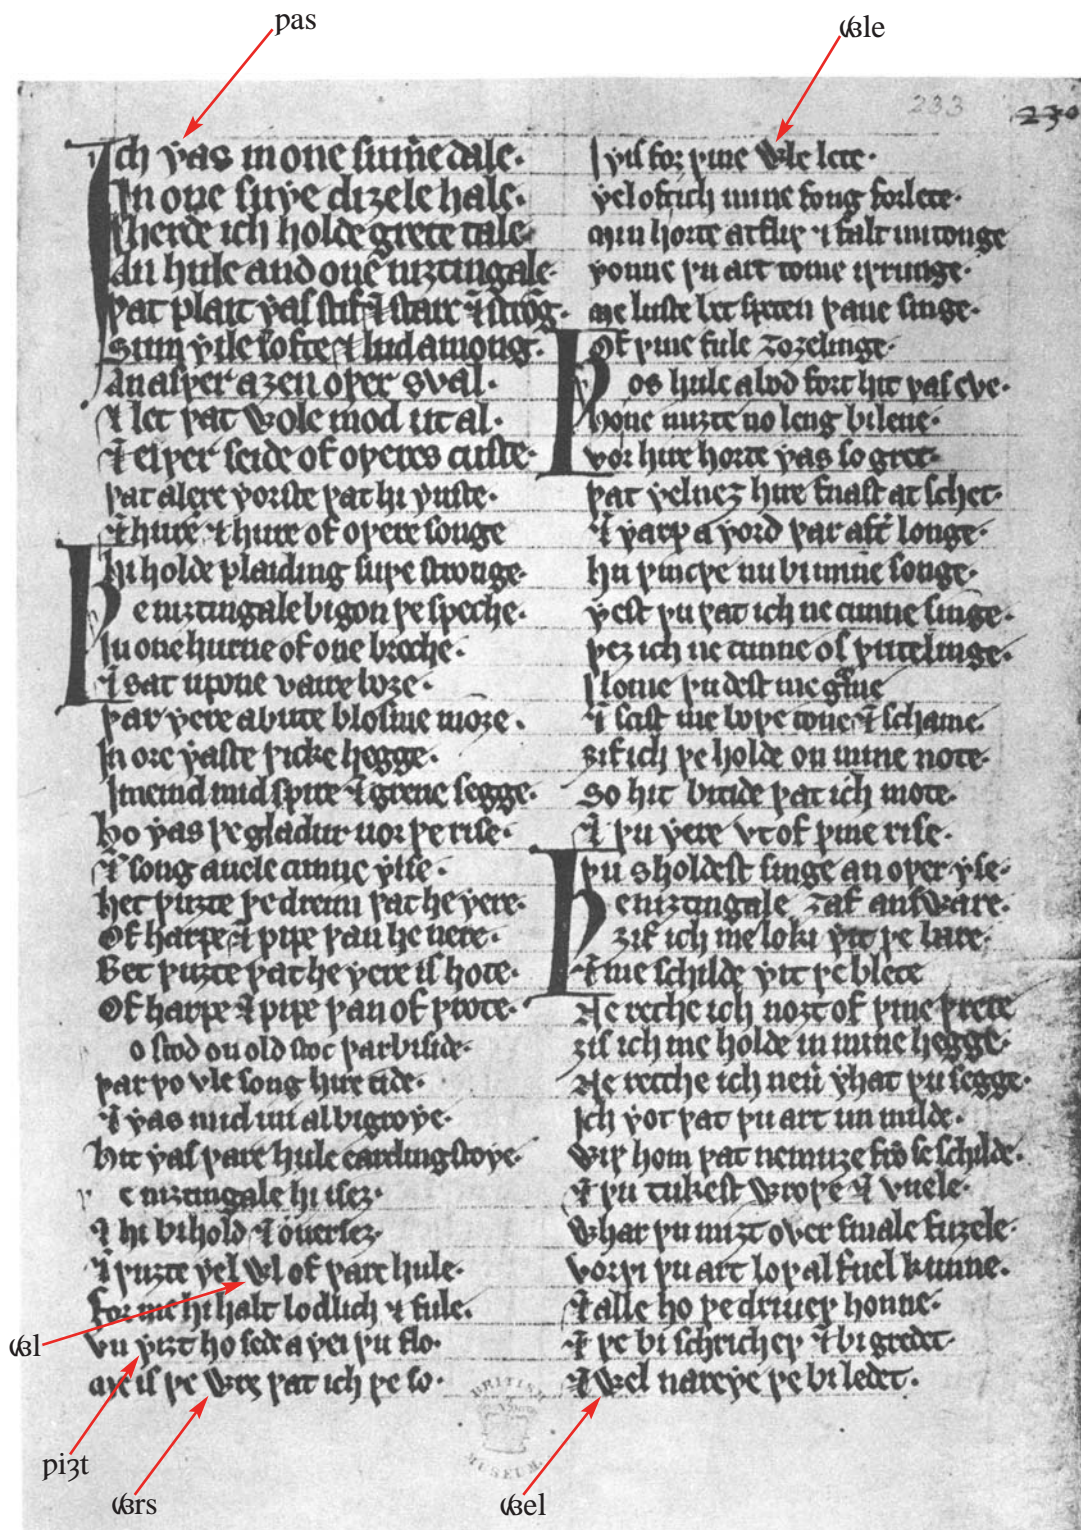 ƿas
wle
233
230
Ich ƿas in one sum̄e dale·
In one suþe diȝele hale·
Iherde ich holde grete tale·
An hule and one niȝtingale·
Þat plait ƿas stif ⁊ starc ⁊ strōg·
Sum ƿile softe ⁊ lud among·
An aiþer aȝen oþer sval·
⁊ let þat wole mod ut al·
⁊ eiþer seide of oþeres custe·
Þat alere ƿorste þat hi ƿuste·
⁊ hure ⁊ hure of oþere songe
Hi holde plaiding suþe stronge·
Þe niȝtingale bigon þe speche·
In one hurne of one breche·
⁊ sat upone vaire boȝe·
Þar ƿere abute blosme inoȝe·
In ore ƿaste þicke hegge·
Imeind mid spire ⁊ grene segge·
Ho ƿas þe gladur uor þe rise·
⁊ song auele cunne ƿise·
Het þuȝte þe dreim þat he ƿere·
Of harpe ⁊ pipe þan he nere·
Bet þuȝte þat he ƿere ishote·
Of harpe ⁊ pipe þan of þrote·
o stod on old stoc þar biside·
Þar þo vle song hire tide·
⁊ ƿas mid iui al bigroƿe·
Hit ƿas þare hule earding stoƿe·
e niȝtingale hi iseȝ·
⁊ hi bihold ⁊ ouerseȝ·
⁊ þuȝte ƿel wl of þare hule·
For me hi halt lodlich ⁊ fule·
Vn ƿiȝt ho sede a ƿei þu flo·
Me is þe wrs þat ich þe so·
Iƿis for þine wle lete·
Ƿel oft ich mine song forlete·
Min horte atfliþ ⁊ falt mi tonge
Ƿonne þu art to me iþrunge·
Me luste bet speten þane singe·
Of þine fule ȝoȝelinge·
Þos hule abod fort hit ƿas eve·
Ho ne miȝte no leng bileue·
Vor hire horte ƿas so gret·
Þat ƿel neȝ hire fnast at schet·
⁊ ƿarp a ƿord þar aft̄ longe·
Hu þincþe nu bi mine songe·
Ƿest þu þat ich ne cunne singe·
Þeȝ ich ne cunne of ƿritelinge·
Ilome þu dest me grame
⁊ seist me boþe tone ⁊ schame·
Ȝif ich þe holde on mine uote·
So hit bitide þat ich mote·
⁊ þu ƿere vt of þine rise·
Þu sholdest singe an oþer ƿse·
Þe niȝtingale ȝaf answare·
Ȝif ich me loki ƿit þe bare·
⁊ me schilde ƿit þe blete
Ne reche ich noȝt of þine þrete
Ȝif ich me holde in mine hegge·
Ne recche ich neu̅ ƿhat þu segge·
Ich ƿot þat þu art un milde·
Wiþ hom þat ne muȝe frō se schilde·
⁊ þu tukest wroþe ⁊ vuele·
Whar þu miȝt over smale fuȝele·
Vorþi þu art loþ al fuel kunne·
⁊ alle ho þe driueþ honne·
⁊ þe bi schricheþ ⁊ bi gredet·
⁊ wel narewe þe bi ledet·
wl
ƿiȝt
wrs
wel
BRITISH
MUSEUM